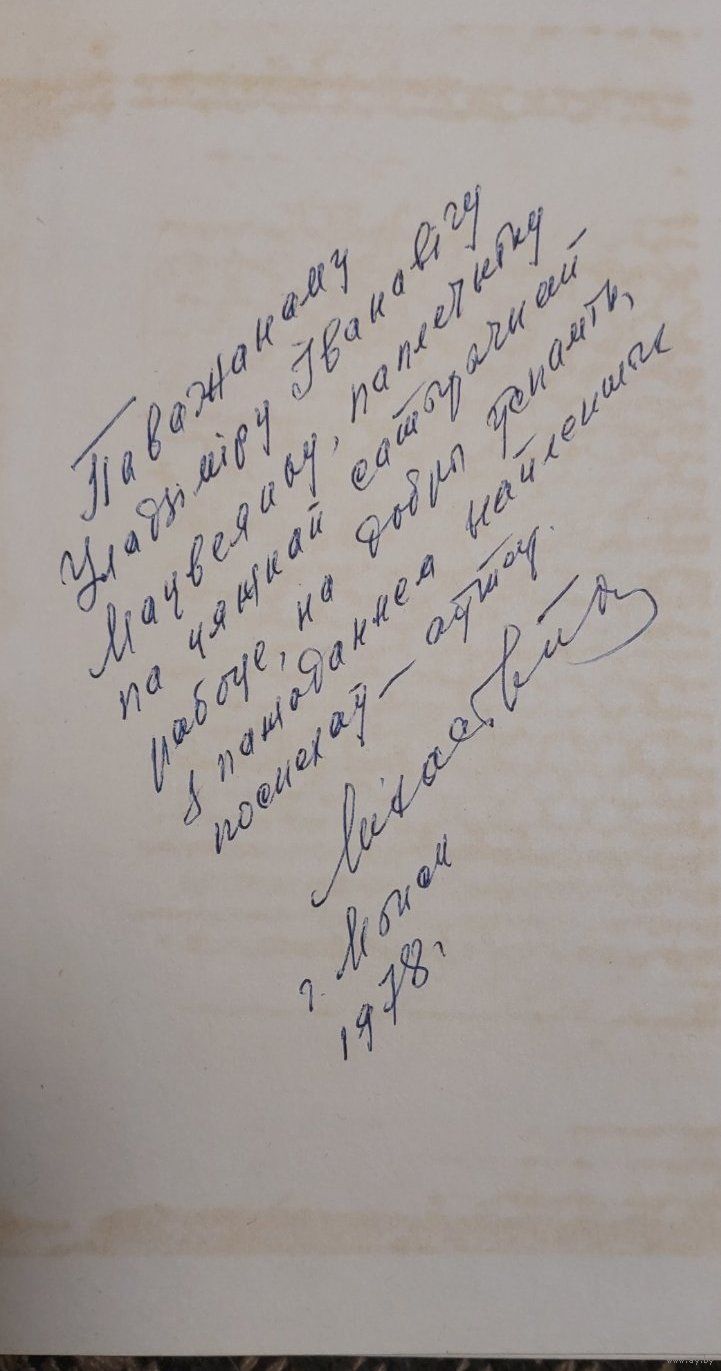 Паважанаму
Уладзіміру Іванавічу
Мацвеяну, паплечніку
па цяжкай сатырычнай
рабоце, на добры ўспамін,
з пажаданнем найлепшых
поспехаў — аўтар.
Міхась
г. Мінск
1978 г.